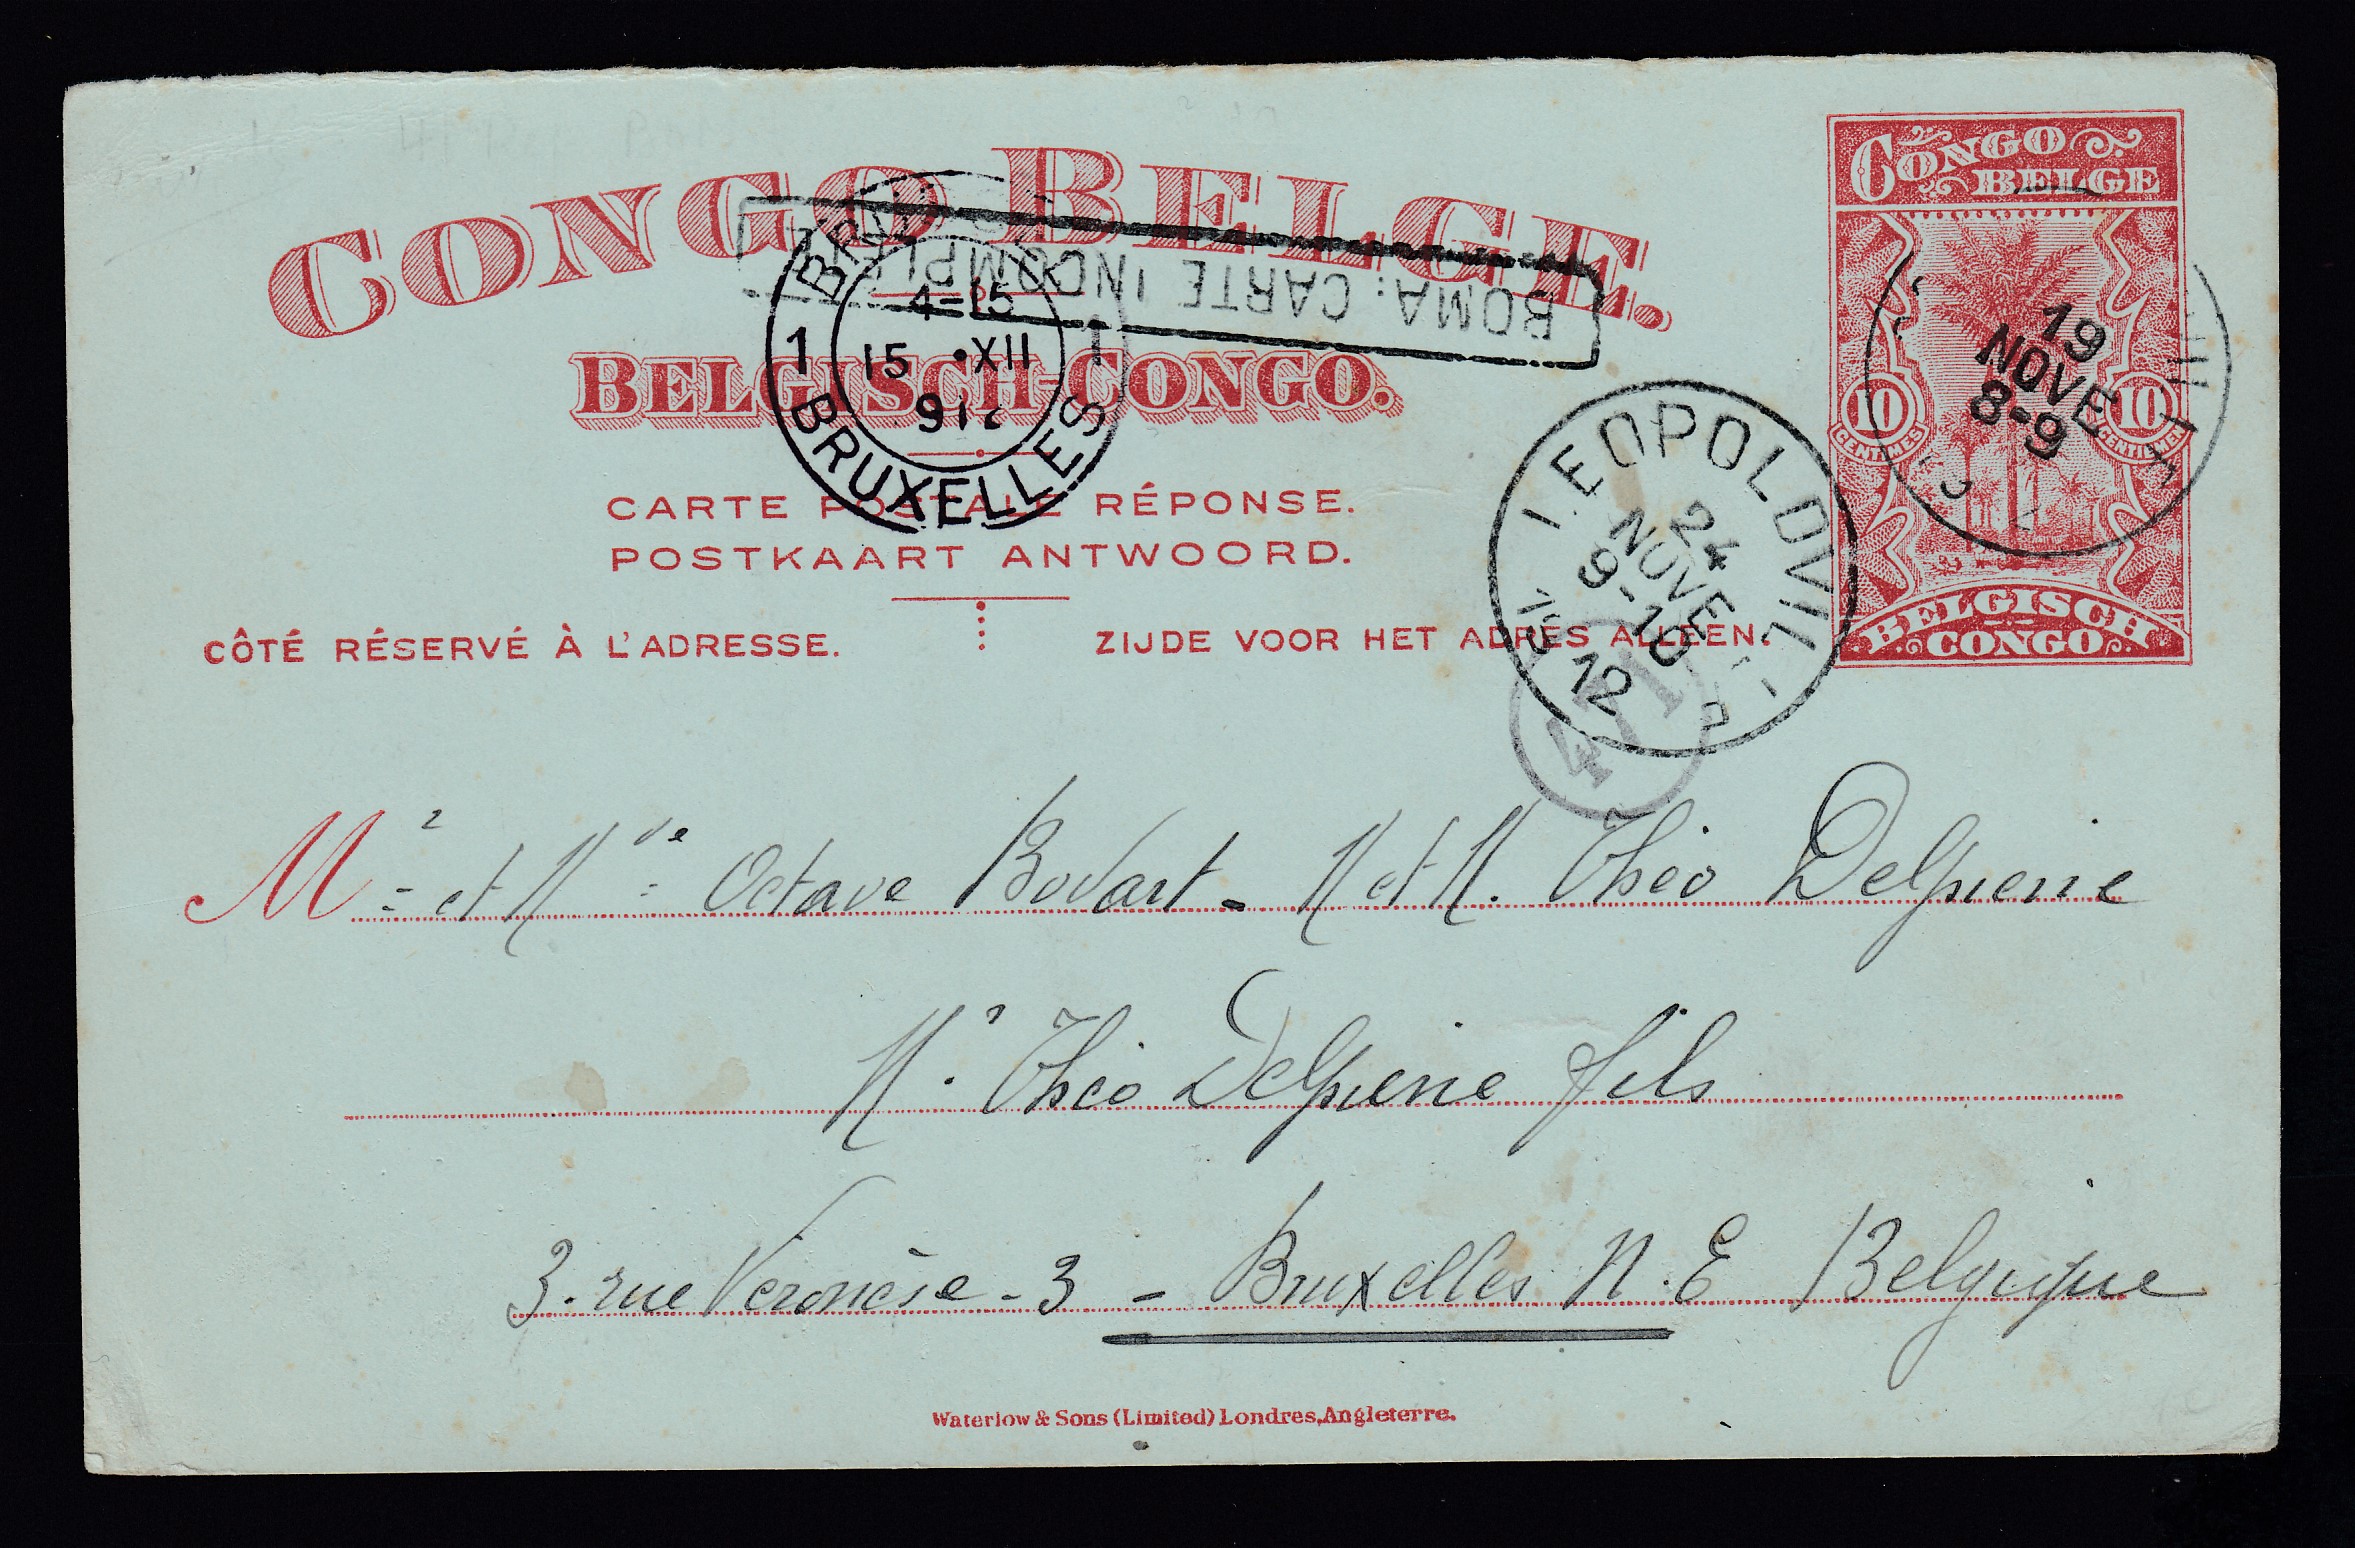 CONGO BELGE.
BELGISCH-CONGO.
CARTE POSTALE RÉPONSE.
POSTKAART ANTWOORD.
CÔTÉ RÉSERVÉ À L'ADRESSE.
ZIJDE VOOR HET ADRES ALLEEN.
CONGO BELGE
10 CENTIMES
10 CENTIMEN
BELGISCH CONGO
19
NOVE
8-9
BOMA: CARTE INCOMPLETE
1 BRUXELLES 1
4-15
15 XII
912
LEOPOLDVILLE
24
NOVE
9-10
12
471
Mr et Mde Octave Bodart - M et M. Théo Delpierre
Mr Théo Delpierre fils
3. rue Veronèse - 3 - Bruxelles N. E Belgique
Waterlow & Sons (Limited) Londres, Angleterre.